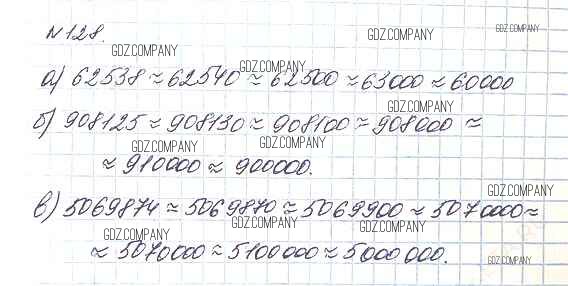 N 128.
GDZ.COMPANY
GDZ.COMPANY
GDZ.COMPANY
а) 62538 ≈ 62540 ≈ 62500 ≈ 63000 ≈ 60000
GDZ.COMPANY
б) 908125 ≈ 908130 ≈ 908100 ≈ 908000 ≈
GDZ.COMPANY
GDZ.COMPANY
≈ 910000 ≈ 900000.
GDZ.COMPANY
в) 5069874 ≈ 5069870 ≈ 5069900 ≈ 5070000 ≈
GDZ.COMPANY
GDZ.COMPANY
GDZ.COMPANY
≈ 5070000 ≈ 5100000 ≈ 5000000.
GDZ.COMPANY
GDZ.COMPANY